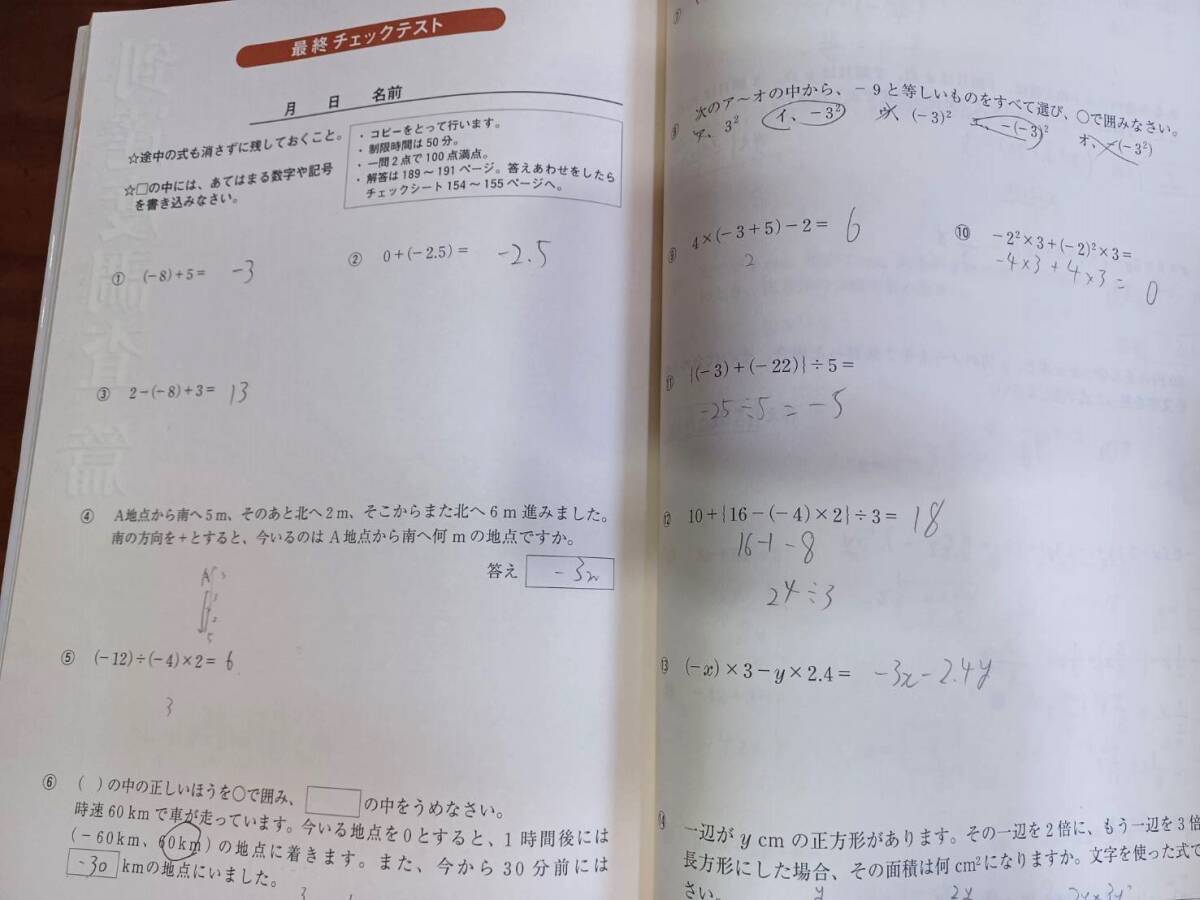 最終チェックテスト
月 日 名前
☆途中の式も消さずに残しておくこと。
☆□の中には、あてはまる数字や記号
を書き込みなさい。
・コピーをとって行います。
・制限時間は50分。
・一問2点で100点満点。
・解答は189～191ページ。答えあわせをしたら
チェックシート154～155ページへ。
① (-8)+5= -3
② 0+(-2.5)= -2.5
③ 2-(-8)+3= 13
④ A地点から南へ5m、そのあと北へ2m、そこからまた北へ6m進みました。
南の方向を+とすると、今いるのはA地点から南へ何mの地点ですか。
答え -3m
A
5
⑤ (-12)÷(-4)×2= 6
3
⑥ ( )の中の正しいほうを○で囲み、□の中をうめなさい。
時速60kmで車が走っています。今いる地点を0とすると、1時間後には
(-60km、60km)の地点に着きます。また、今から30分前には
-30 kmの地点にいました。
⑦
次のア～オの中から、-9と等しいものをすべて選び、○で囲みなさい。
⑧ ア、3² イ、-3² ウ、(-3)² エ、-(-3)² オ、-(-3²)
⑨ 4×(-3+5)-2= 6
2
⑩ -2²×3+(-2)²×3=
-4×3+4×3= 0
⑪ {(-3)+(-22)}÷5=
-25÷5=-5
⑫ 10+{16-(-4)×2}÷3= 18
24÷3
⑬ (-x)×3-y×2.4= -3x-2.4y
⑭ 一辺がy cmの正方形があります。その一辺を2倍に、もう一辺を3倍
長方形にした場合、その面積は何cm²になりますか。文字を使った式で
さい。
y 2y